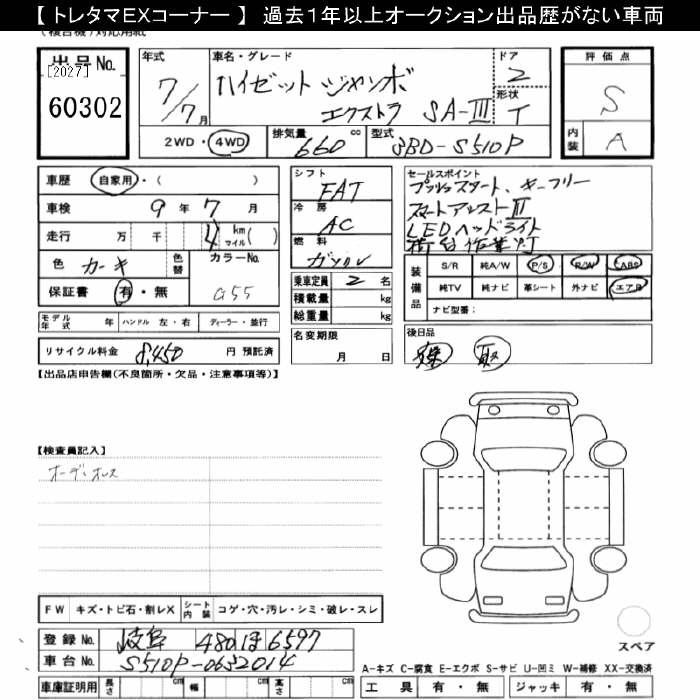 【 トレタマEXコーナー 】 過去1年以上オークション出品歴がない車両
出品No.
[2027]
60302
年式
7/7月
車名・グレード
ハイゼット ジャンボ
エクストラ SA-III
ドア
2
形状
T
評価点
S
内装
A
2WD・4WD
排気量
660 cc
型式
3BD-S510P
車歴
自家用・( )
車検
9年7月
走行
万 千 4 km マイル( )
色
カーキ
色替
カラーNo.
G55
保証書
有・無
モデル年式 年
ハンドル 左・右
ディーラー・並行
リサイクル料金 8,450 円 預託済
シフト
FAT
冷房
AC
燃料
ガソリン
乗車定員 2 名
積載量 kg
総重量 kg
名変期限
月 日
セールスポイント
プッシュスタート、キーフリー
スマートアシストIII
LEDヘッドライト
荷台作業灯
装備品
S/R 純A/W P/S R/W ABS
純TV 純ナビ 革シート 外ナビ エアB
ナビ型番:
後日品
保 取
【出品店申告欄(不良箇所・欠品・注意事項等)】
【検査員記入】
オーディオレス
FW キズ・トビ石・割レX
シート内装 コゲ・穴・汚レ・シミ・破レ・スレ
登録No. 岐阜 480 ほ 6597
車台No. S510P-0652014
車庫証明用 長さ cm 幅 cm 高さ cm
スペア
A-キズ C-腐食 E-エクボ S-サビ U-凹ミ W-補修 XX-交換済
工具 有・無 ジャッキ 有・無